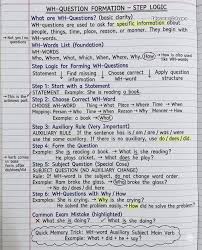 WH-QUESTION FORMATION – STEP LOGIC
What are WH-Questions? (basic clarity)
WH-questions are used to ask for specific information about
people, things, time, place, reason, or manner. They begin with
WH-words.
WH-Words List (foundation)
WH-WORDS:
Who, What, When, Where, Which, Why, How
Step Logic for Forming WH-Questions
Statement | Find missing information | Choose correct WH-word | Apply question structure
Step 1: Start with a Statement
STATEMENT Example: She is reading a book.
Step 2: Choose Correct WH-Word
CHOOSE WH-WORD Thing → What Place → Where Time → When
Manner → How
Example: a book → What
Step 3: Auxiliary Rule (Very Important)
AUXILIARY RULE If the sentence has is / am / are / was / were
use the same auxiliary. If there is no auxiliary, use do / does / did
Step 4: Form the Question
Example: She is reading a book → What is she reading?
He plays cricket. → What does he play?
Step 5: Subject Question (Special Case)
SUBJECT QUESTION (NO AUXILIARY CHANGE)
Rule: If WH-word is the subject, do not change word order.
Example: Ravi broke the glass. → Who broke the glass?
→ No do / does / did here
Step 6: WH-Questions with Why / How
Example: She is crying. → Why is she crying?
He solved the problem easily. → How did he solve the problem?
Common Exam Mistake (highlighted)
What she is doing? What is she doing?
Quick Memory Trick: WH-word Auxiliary Subject Main Verb
Example: What + did + he + say?